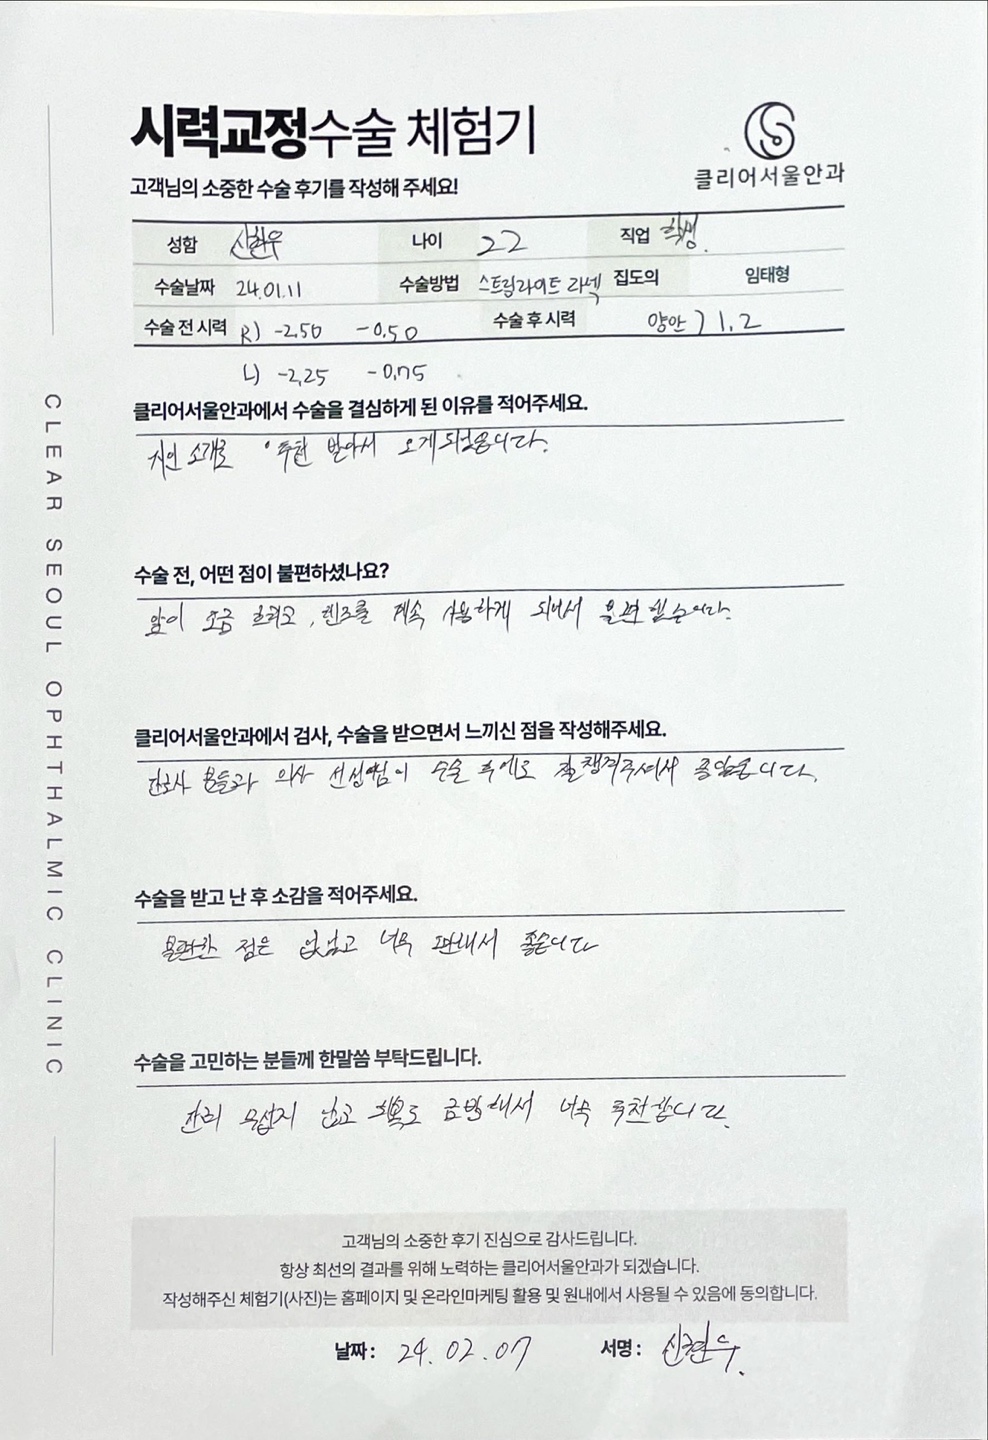 시력교정수술 체험기
고객님의 소중한 수술 후기를 작성해 주세요!
클리어서울안과
성함 신현우 나이 22 직업 학생.
수술날짜 24.01.11 수술방법 스트림라이트 라섹 집도의 임태형
수술 전 시력 R) -2.50 -0.50 수술 후 시력 양안) 1.2
L) -2.25 -0.75
클리어서울안과에서 수술을 결심하게 된 이유를 적어주세요.
지인 소개로 추천 받아서 오게되었습니다.
수술 전, 어떤 점이 불편하셨나요?
앞이 조금 흐리고, 렌즈를 계속 사용하게 되면서 불편했습니다.
클리어서울안과에서 검사, 수술을 받으면서 느끼신 점을 작성해주세요.
간호사 분들과 의사 선생님이 수술 후에도 잘 챙겨주셔서 좋았습니다.
수술을 받고 난 후 소감을 적어주세요.
불편한 점은 없었고 너무 편해서 좋습니다
수술을 고민하는 분들께 한말씀 부탁드립니다.
무섭지 않고 회복도 금방해서 너무 추천합니다.
고객님의 소중한 후기 진심으로 감사드립니다.
항상 최선의 결과를 위해 노력하는 클리어서울안과가 되겠습니다.
작성해주신 체험기(사진)는 홈페이지 및 온라인마케팅 활용 및 원내에서 사용될 수 있음에 동의합니다.
날짜 : 24. 02. 07 서명 : 신현우.
CLEAR SEOUL OPHTHALMIC CLINIC